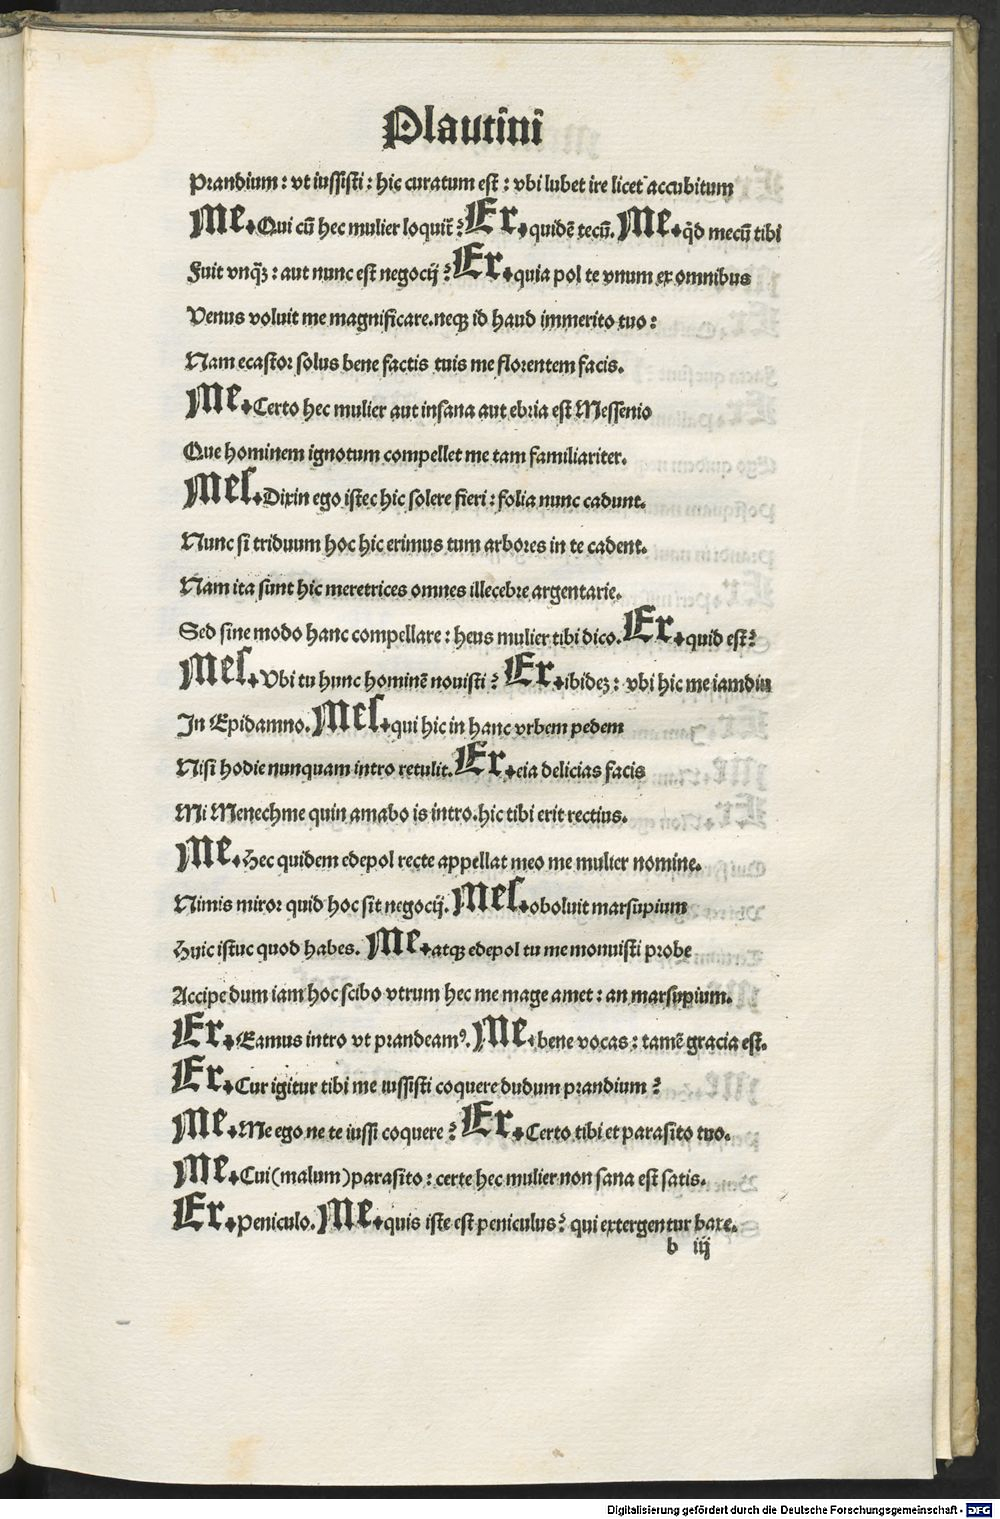 Plautini
Prandium : vt iussisti : hic curatum est : vbi lubet ire licet accubitum
Me. Qui cū hec mulier loquit̄ ? Er. quidē tecū. Me. q̇d mecū tibi
Fuit vnq̄ʒ : aut nunc est negocij ? Er. quia pol te vnum ex omnibus
Venus voluit me magnificare. neqʒ id haud immerito tuo :
Nam ecastor solus bene factis tuis me florentem facis.
Me. Certo hec mulier aut insana aut ebria est Messenio
Que hominem ignotum compellet me tam familiariter.
Mes. Dixin ego istec hic solere fieri : folia nunc cadunt.
Nunc si triduum hoc hic erimus tum arbores in te cadent.
Nam ita sunt hic meretrices omnes illecebre argentarie.
Sed sine modo hanc compellare : heus mulier tibi dico. Er. quid est ?
Mes. Vbi tu hunc hominē novisti ? Er. ibideʒ : vbi hic me iamdiu
In Epidamno. Mes. qui hic in hanc vrbem pedem
Nisi hodie nunquam intro retulit. Er. eia delicias facis
Mi Menechme quin amabo is intro. hic tibi erit rectius.
Me. Hec quidem edepol recte appellat meo me mulier nomine.
Nimis miror quid hoc sit negocij. Mes. oboluit marsupium
Huic istuc quod habes. Me. atqʒ edepol tu me monuisti probe
Accipe dum iam hoc scibo vtrum hec me mage amet : an marsupium.
Er. Eamus intro vt prandeamꝰ. Me. bene vocas : tamē gracia est.
Er. Cur igitur tibi me iussisti coquere dudum prandium ?
Me. Me ego ne te iussi coquere ? Er. Certo tibi et parasito tuo.
Me. Cui (malum) parasito : certe hec mulier non sana est satis.
Er. Peniculo. Me. quis iste est peniculus ? qui extergentur baxe.
b iij
Digitalisierung gefördert durch die Deutsche Forschungsgemeinschaft - DFG